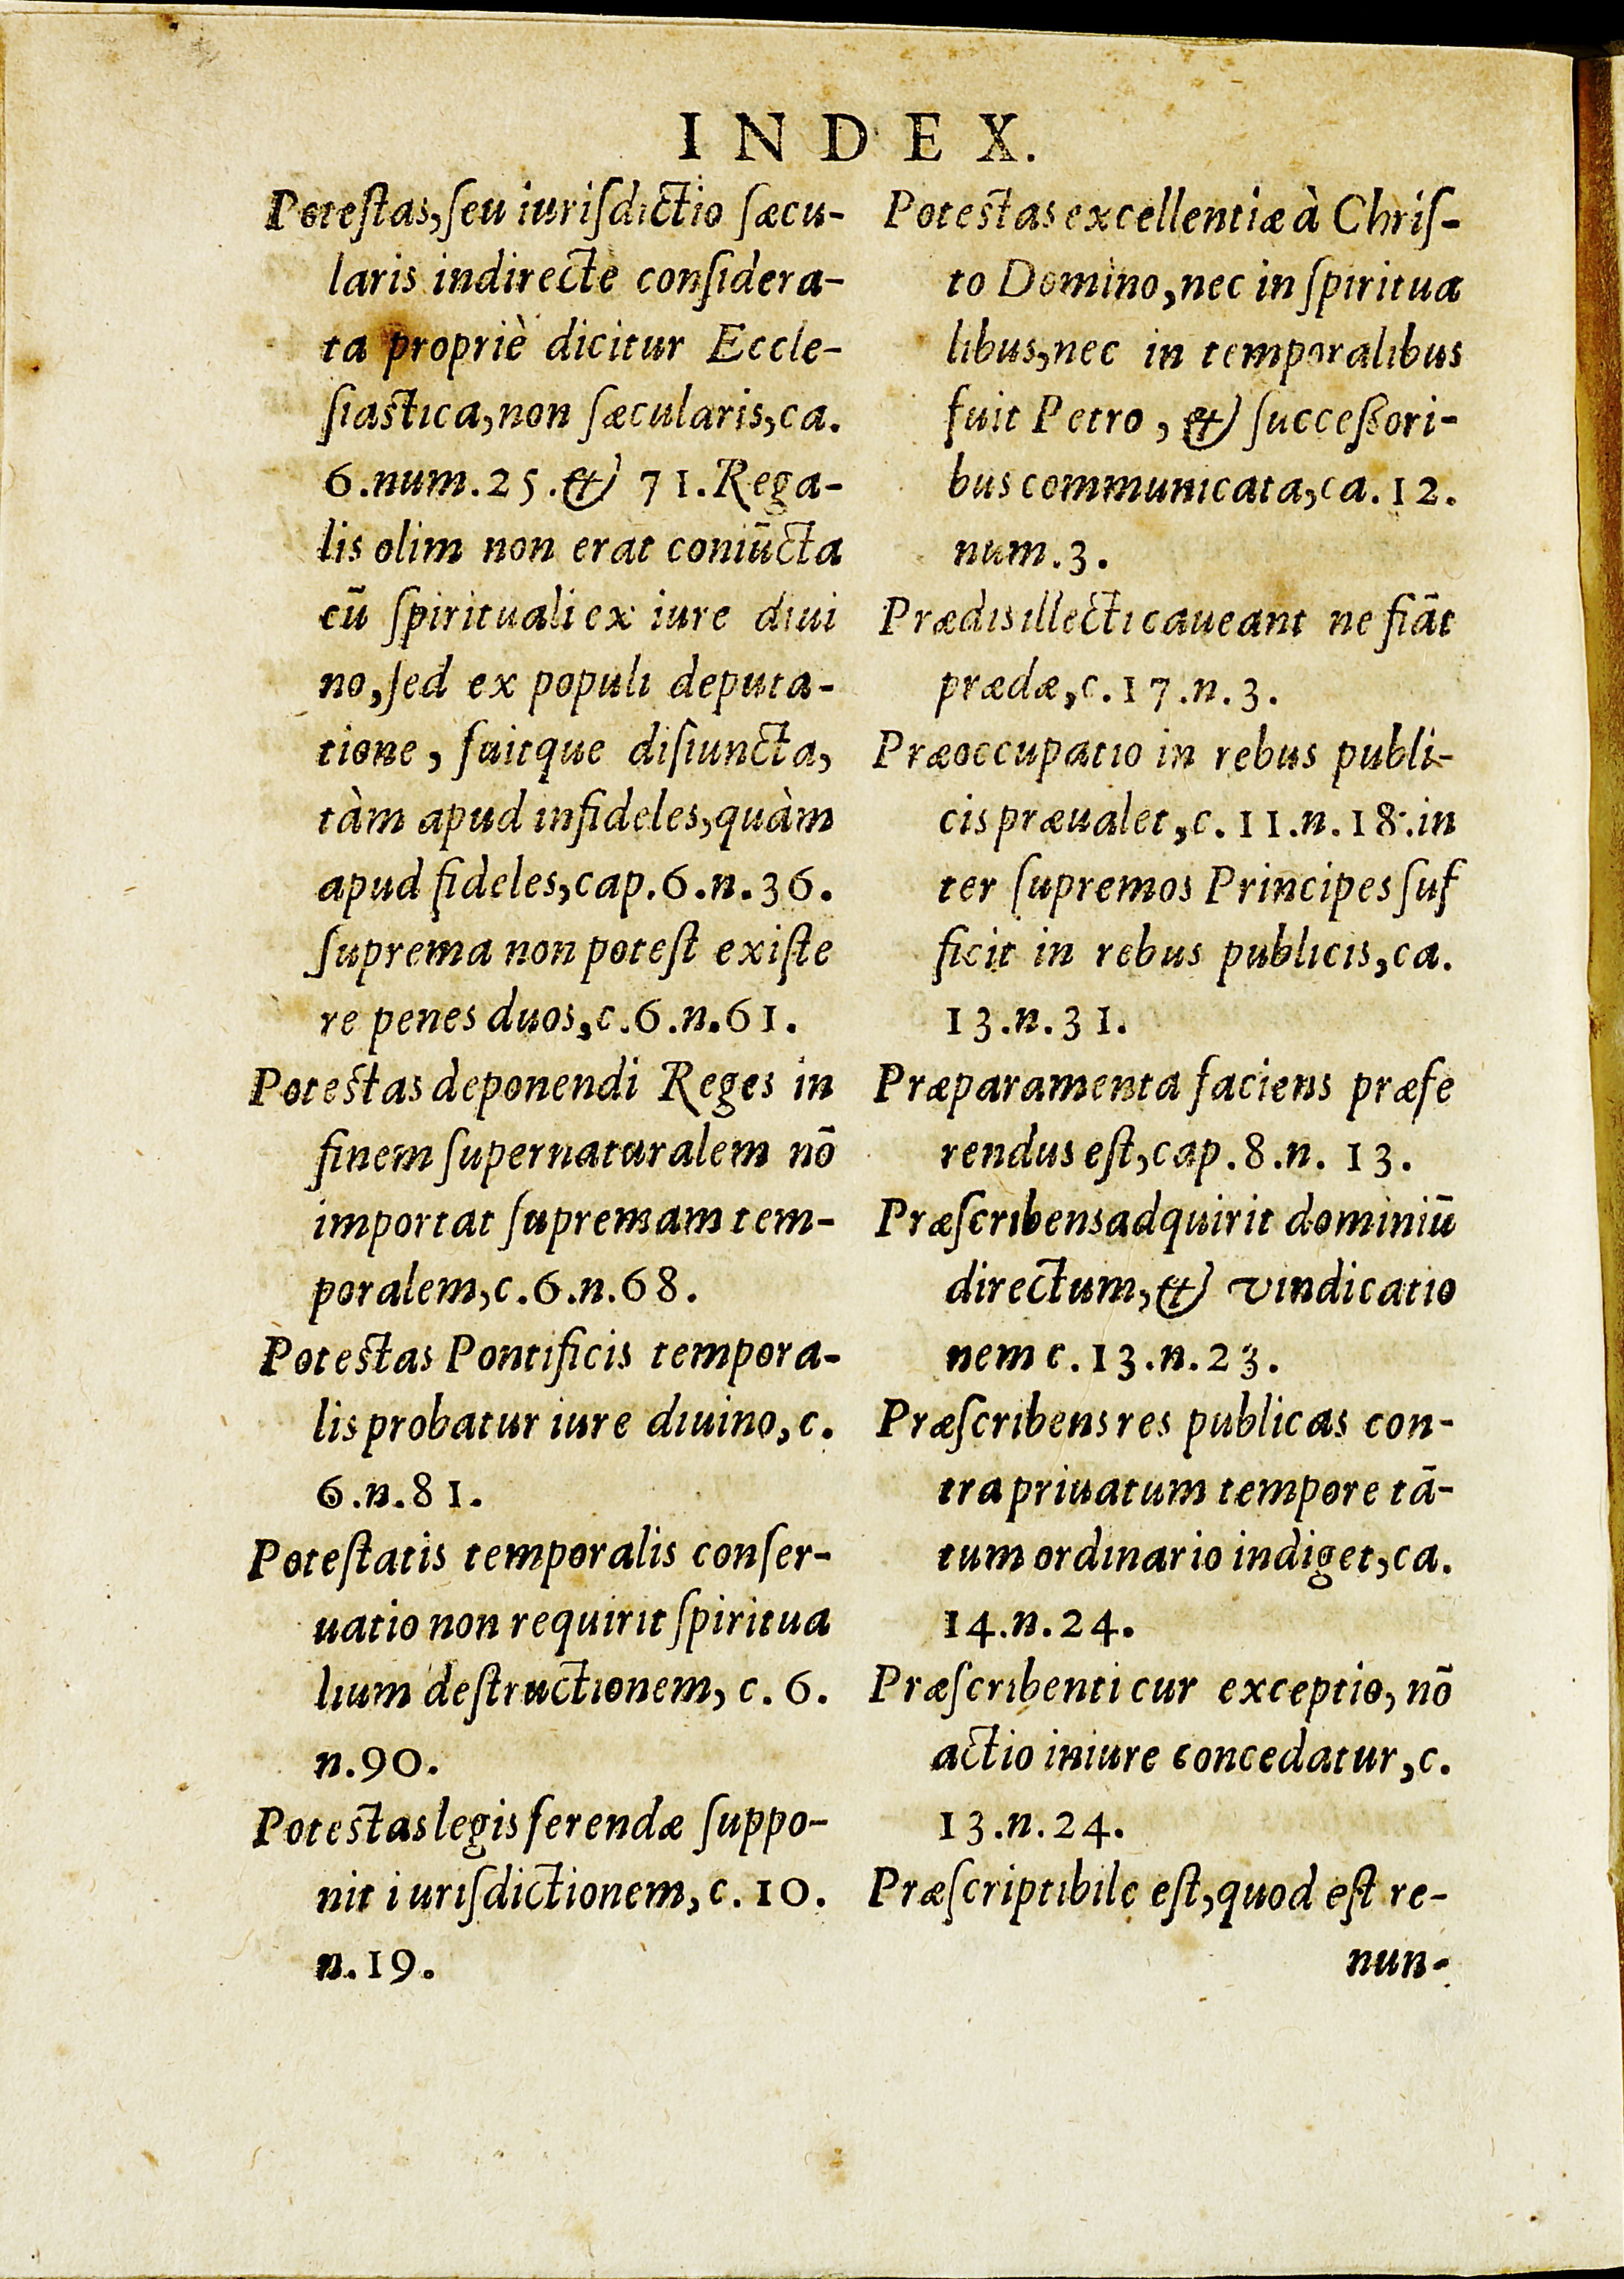 INDEX.
Poteſtas, ſeu iuriſdictio ſæcu-
laris indirectè conſidera-
ta propriè dicitur Eccle-
ſiaſtica, non ſæcularis, ca.
6. num. 25. & 71. Rega-
lis olim non erat coniūcta
cū ſpirituali ex iure diui
no, ſed ex populi deputa-
tione, fuitque diſiuncta,
tàm apud infideles, quàm
apud fideles, cap. 6. n. 36.
ſuprema non poteſt exiſte
re penes duos, c. 6. n. 61.
Poteſtas deponendi Reges in
finem ſupernaturalem nō
importat ſupremam tem-
poralem, c. 6. n. 68.
Poteſtas Pontificis tempora-
lis probatur iure diuino, c.
6. n. 81.
Poteſtatis temporalis conſer-
uatio non requirit ſpiritua
lium deſtructionem, c. 6.
n. 90.
Poteſtas legis ferendæ ſuppo-
nit iuriſdictionem, c. 10.
n. 19.
Poteſtas excellentiæ à Chriſ-
to Domino, nec in ſpiritua
libus, nec in temporalibus
fuit Petro, & ſucceſſori-
bus communicata, ca. 12.
num. 3.
Prædis illecti caueant ne fiāt
prædæ, c. 17. n. 3.
Præoccupatio in rebus publi-
cis præualet, c. 11. n. 18. in
ter ſupremos Principes ſuf
ficit in rebus publicis, ca.
13. n. 31.
Præparamenta faciens præfe
rendus eſt, cap. 8. n. 13.
Præſcribens adquirit dominiū
directum, & vindicatio
nem c. 13. n. 23.
Præſcribens res publicas con-
tra priuatum tempore tā-
tum ordinario indiget, ca.
14. n. 24.
Præſcribenti cur exceptio, nō
actio in iure concedatur, c.
13. n. 24.
Præſcriptibile eſt, quod eſt re-
nun-